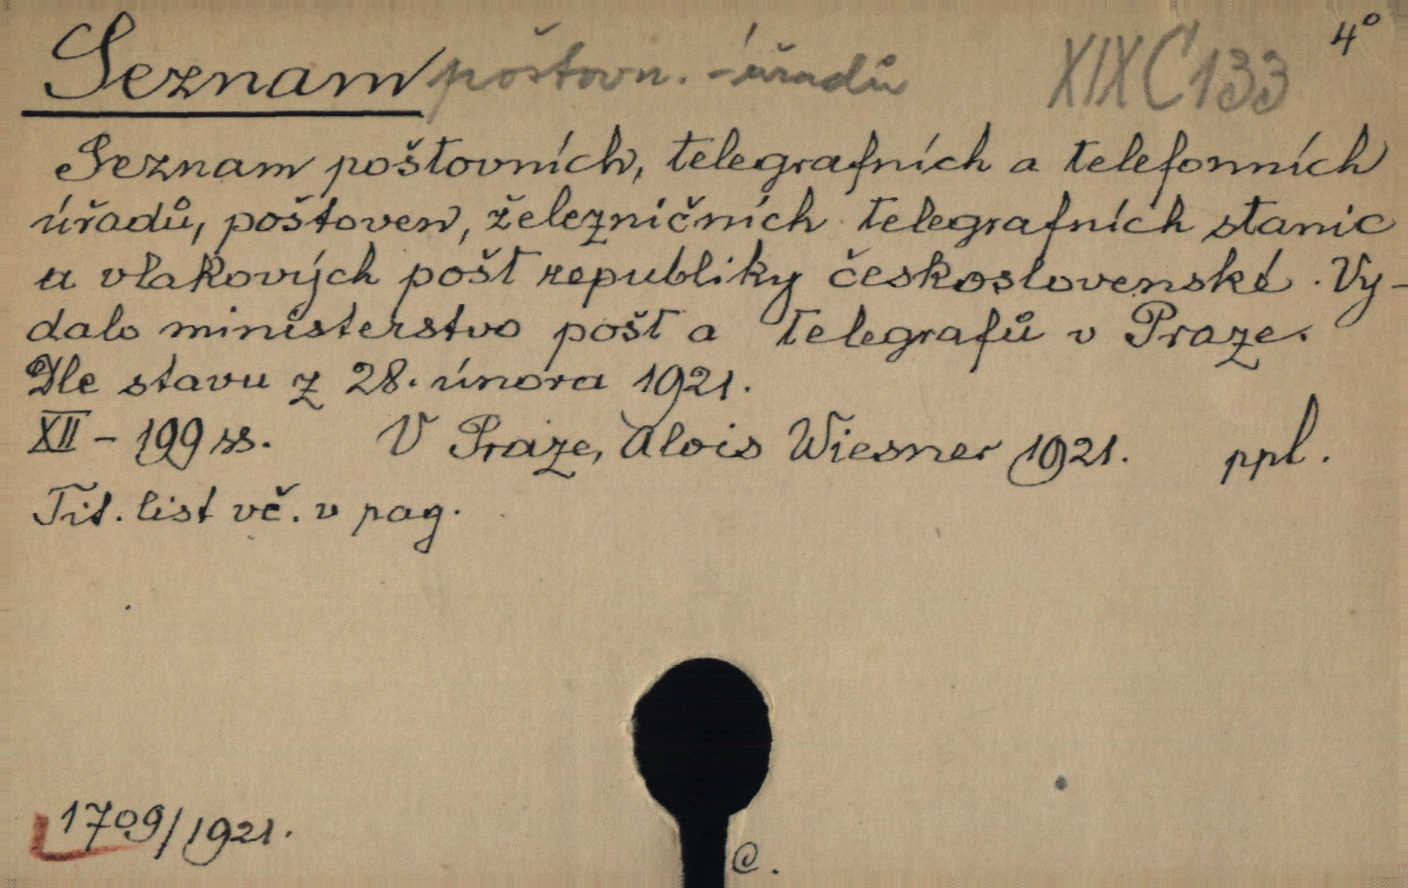 Seznam poštovn. - úřadů XIX C 133 4°
Seznam poštovních, telegrafních a telefonních
úřadů, poštoven, železničních telegrafních stanic
a vlakových pošt republiky československé. Vy-
dalo ministerstvo pošt a telegrafů v Praze.
Dle stavu z 28. února 1921.
XII - 199 ss. V Praze, Alois Wiesner 1921. ppl.
Tit. list vč. v pag.
1709/1921.
C.